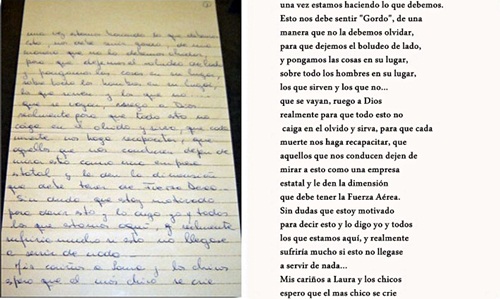 una vez estamos haciendo lo que debemos
esto, nos debe sentir gordo, de una
manera que no la debemos olvidar,
para que dejemos el boludeo de lado
y pongamos las cosas en su lugar,
sobre todo los hombres en su lugar,
los que sirven y los que no
que se vayan, ruego a Dios
realmente para que todo esto no
caiga en el olvido y sirva, que cada
muerte nos haga recapacitar, que
aquellos que nos conducen dejen de
mirar esto como una empresa
estatal y le den la dimensión
que debe tener la Fuerza Aérea...
Sin dudas que estoy motivado
para decir esto y lo digo yo y todos
los que estamos aquí, y realmente
sufriría mucho si esto no llegase
a servir de nada...
Mis cariños a Laura y los chicos
espero que el mas chico se crie
una vez estamos haciendo lo que debemos.
Esto nos debe sentir "Gordo", de una
manera que no la debemos olvidar,
para que dejemos el boludeo de lado,
y pongamos las cosas en su lugar,
sobre todo los hombres en su lugar,
los que sirven y los que no...
que se vayan, ruego a Dios
realmente para que todo esto no
caiga en el olvido y sirva, para que cada
muerte nos haga recapacitar, que
aquellos que nos conducen dejen de
mirar a esto como una empresa
estatal y le den la dimensión
que debe tener la Fuerza Aérea.
Sin dudas que estoy motivado
para decir esto y lo digo yo y todos
los que estamos aquí, y realmente
sufriría mucho si esto no llegase
a servir de nada...
Mis cariños a Laura y los chicos
espero que el mas chico se crie